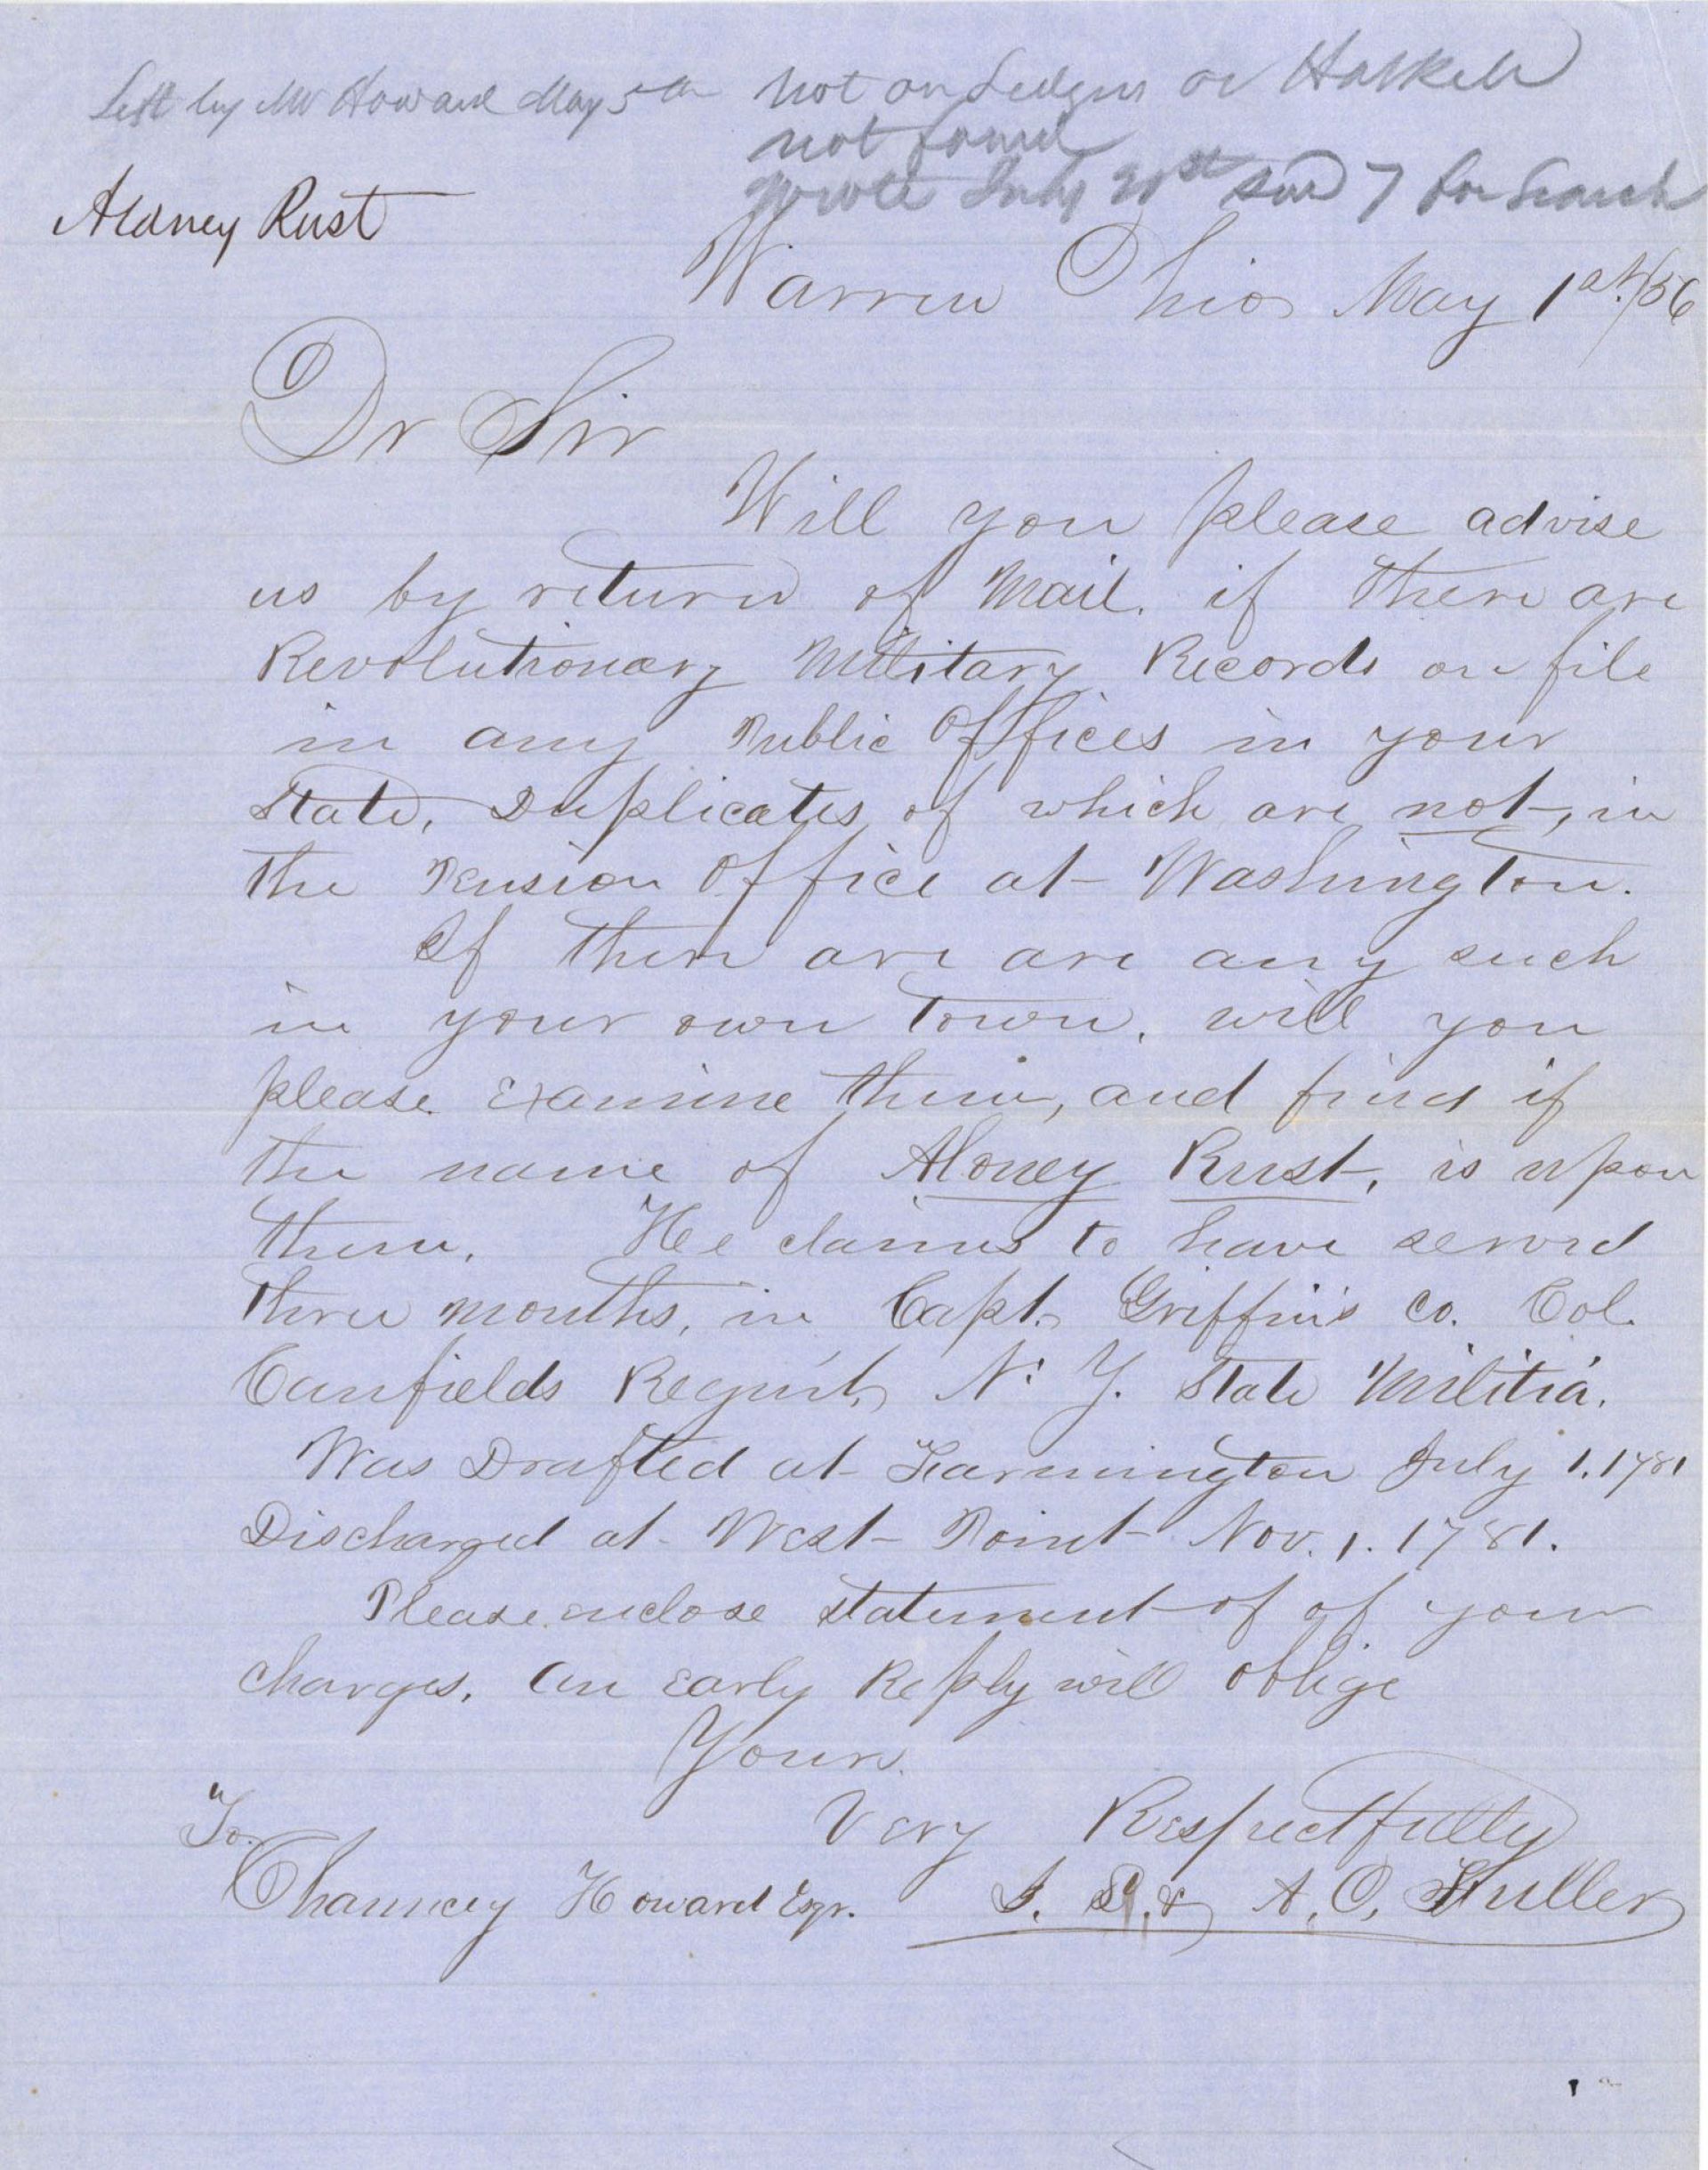 Left by Mr Howard May 5th
not on Ledgers or Haskell
not found
wrote July 21st for Search
Aloney Rust
Warren Ohio May 1st /56
Dr Sir
Will you please advise
us by return of Mail. if there are
Revolutionary Military Records on file
in any Public Offices in your
State, Duplicates of which are not, in
the Pension Office at Washington.
If there are are any such
in your own Town, will you
please examine them, and find if
the name of Aloney Rust, is upon
them. He claims to have served
three months, in Capt. Griffin's Co. Col.
Canfields Regmt, N. Y. State Militia.
Was Drafted at Farmington July 1. 1781
Discharged at West Point Nov. 1. 1781.
Please enclose statement of of your
charges. An early Reply will oblige
Yours.
Very Respectfully
To.
Chauncey Howard Esqr.
& A. C. Fuller